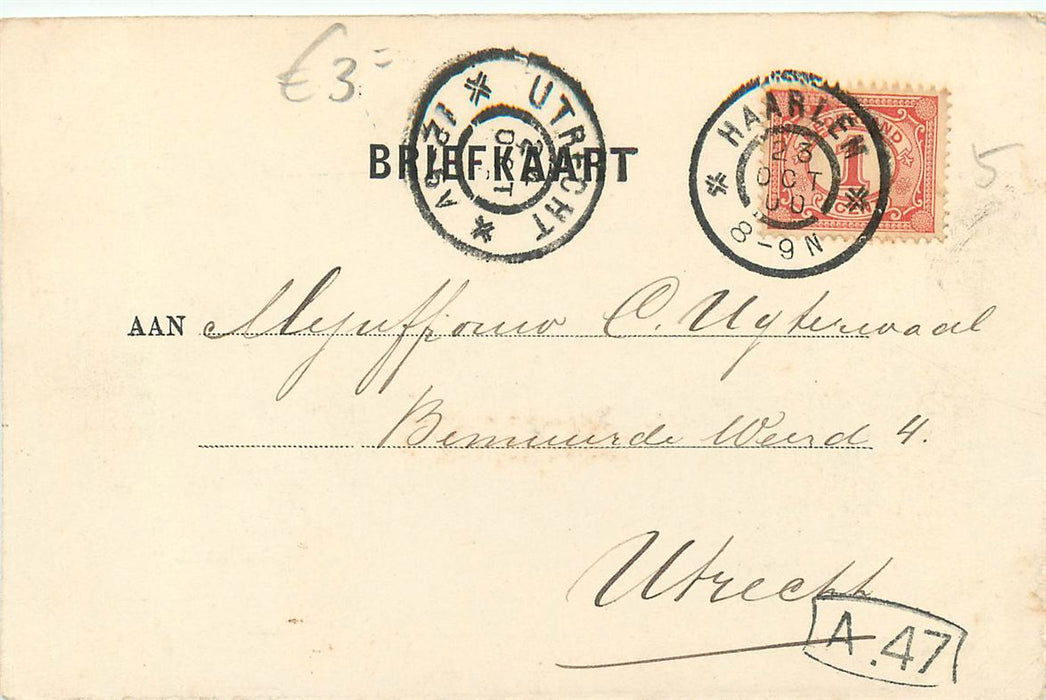 € 3-
UTRECHT
OCT
BRIEFKAART
HAARLEM
23
OCT
00
8-9 N
1
5
AAN Mejuffrouw C. Uyterwaal
Bemuurde Weerd 4.
Utrecht
A.47